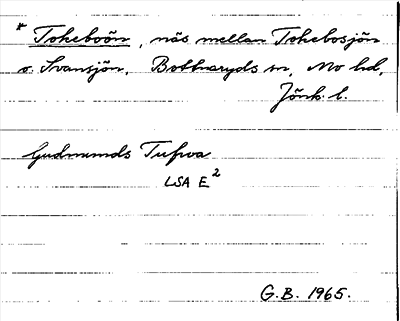 * Tokeboön, näs mellan Tokebosjön
o. Svansjön. Bottnaryds sn, Mo hd,
Jönk. l.
Gudmunds Tufva
LSA E²
G.B. 1965.